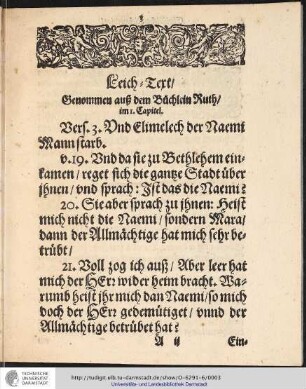 Leich-Text/
Genommen auß dem Büchlein Ruth/
im 1. Capitel.
Vers. 3. Vnd Elimelech der Naemi
Mann starb.
v. 19. Vnd da sie zu Bethlehem ein-
kamen/ reget sich die gantze Stadt über
jhnen/ vnd sprach: Jst das die Naemi?
20. Sie aber sprach zu jhnen: Heist
mich nicht die Naemi/ sondern Mara/
dann der Allmächtige hat mich sehr be-
trübt/
21. Voll zog ich auß/ Aber leer hat
mich der HErr wider heim bracht. Wa-
rumb heist jhr mich dan Naemi/ so mich
doch der HErr gedemütiget/ vnnd der
Allmächtige betrübet hat?
A ij Ein-
TECHNISCHE
UNIVERSITÄT
DARMSTADT
http://tudigit.ulb.tu-darmstadt.de/show/O-6291-6/0003
Universitäts- und Landesbibliothek Darmstadt